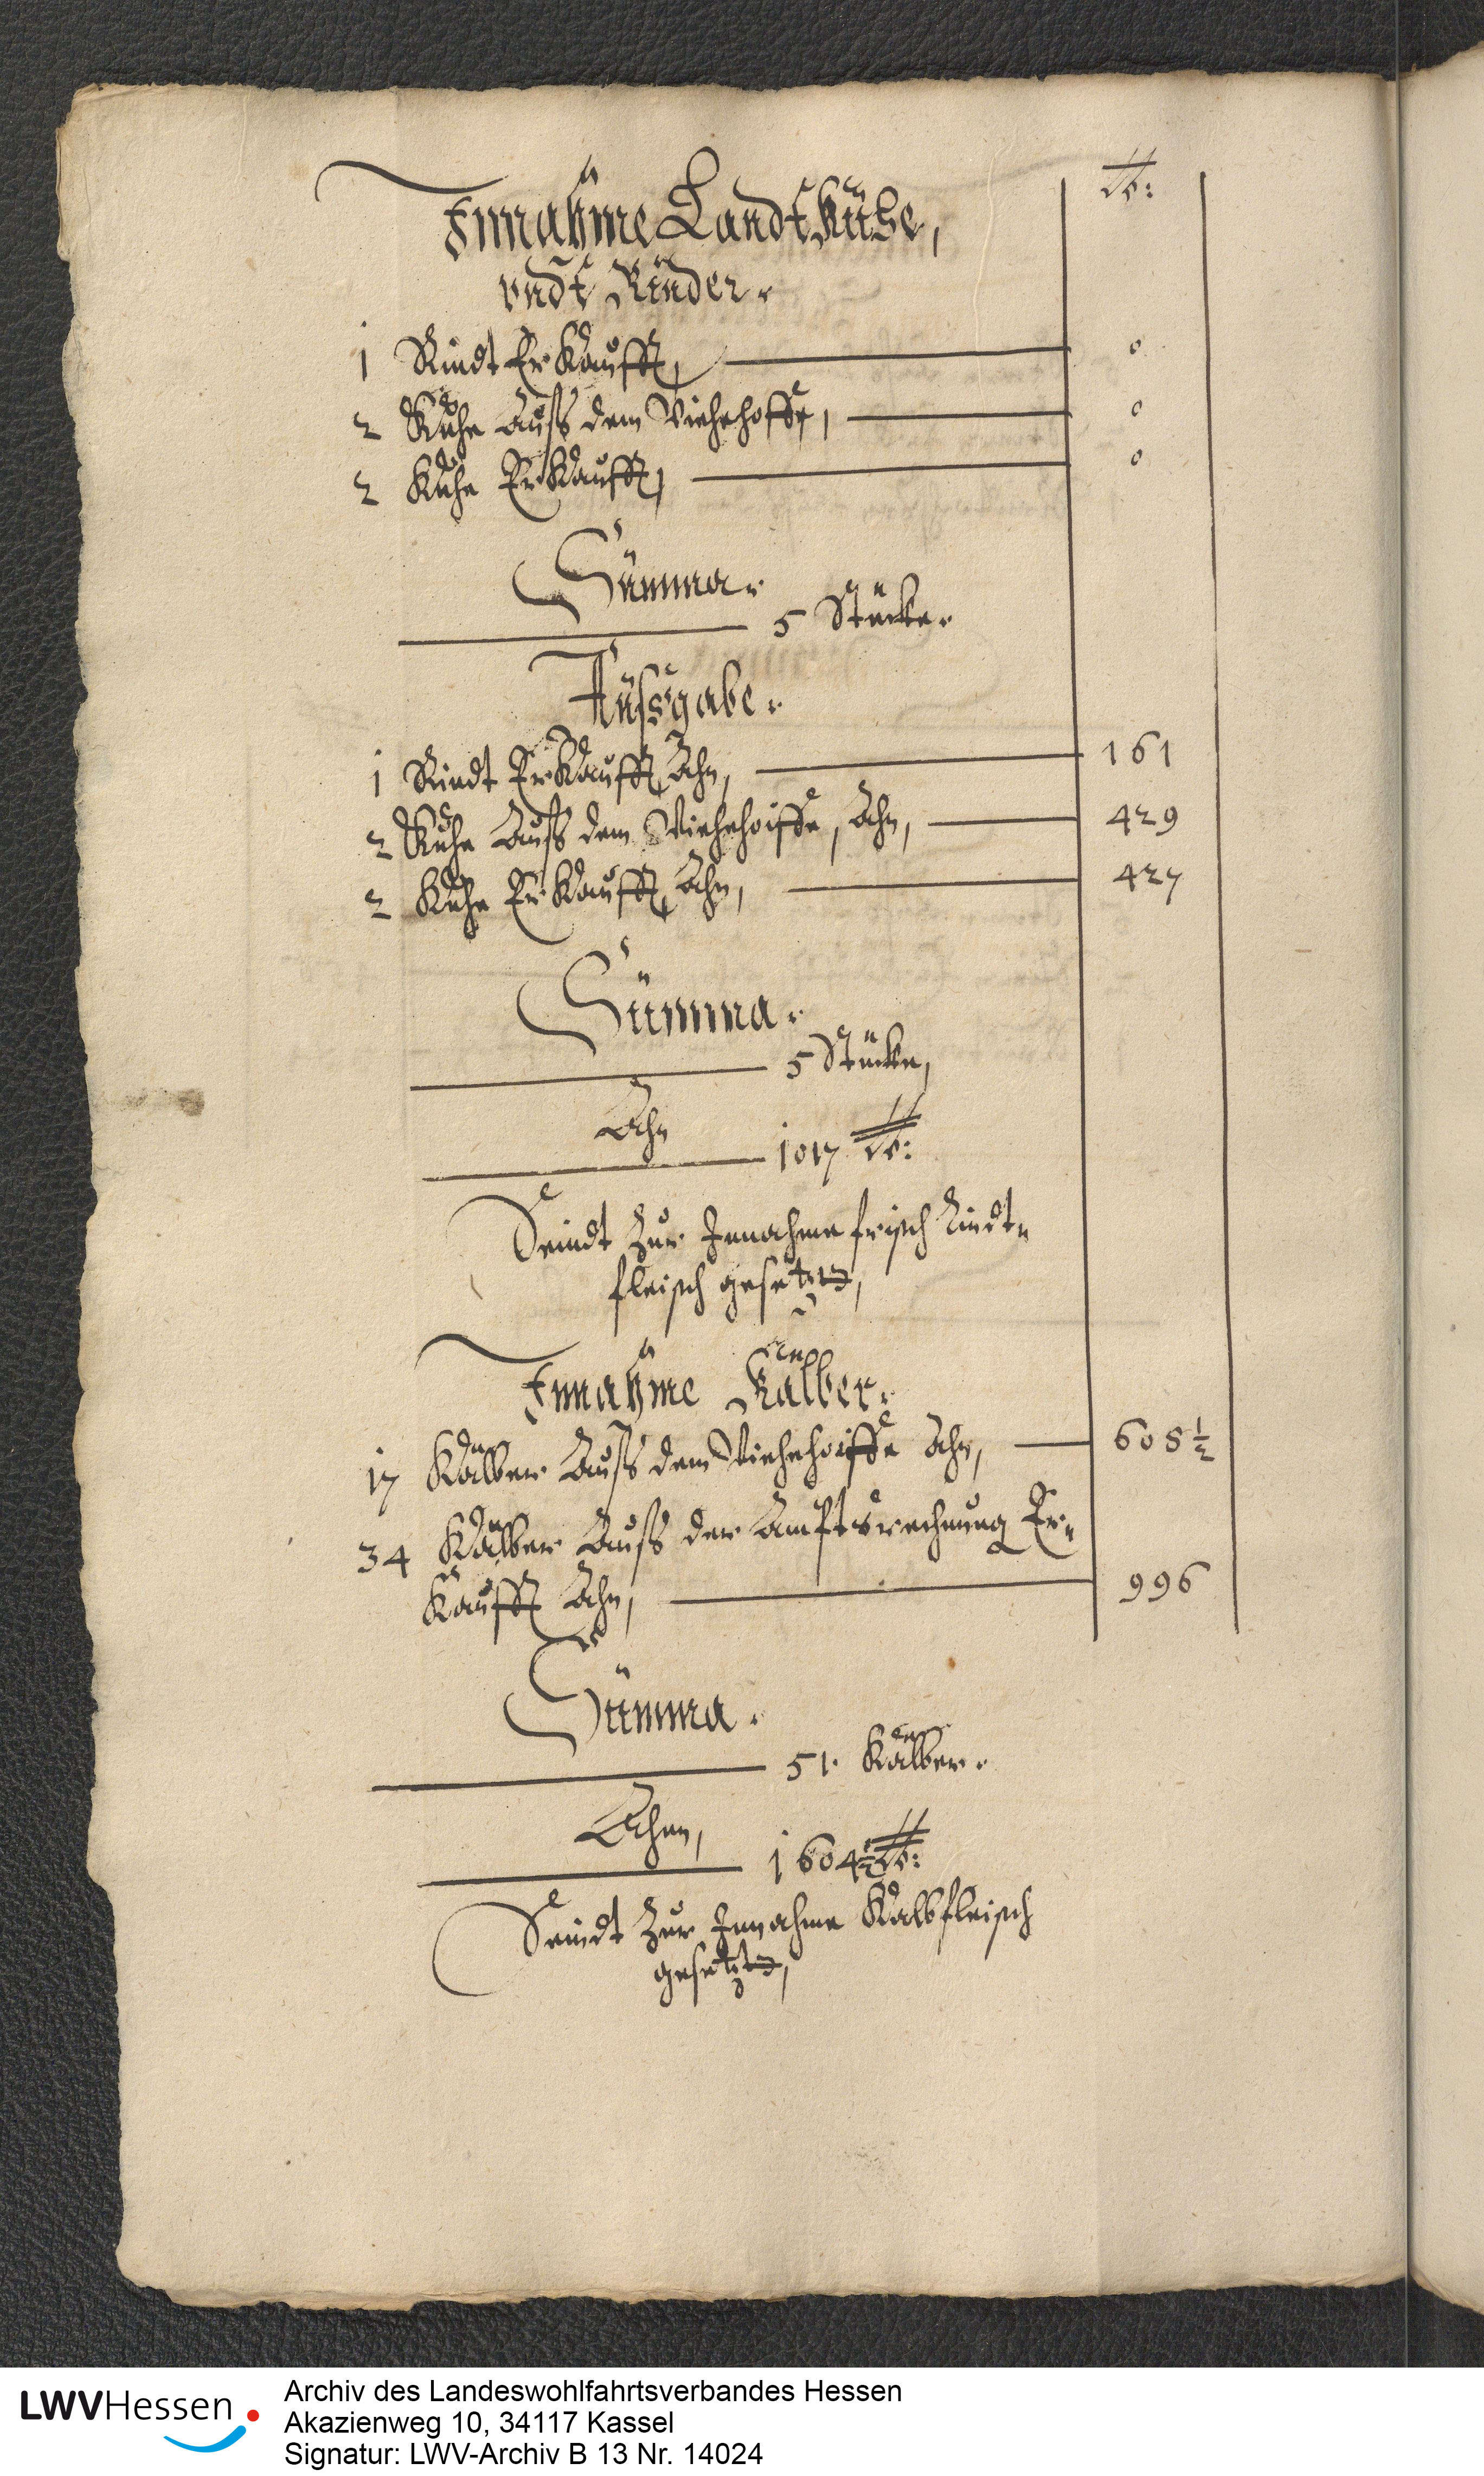 ℔:
Innahme Landt Kühe,
vndt Rinder.
1 Rindt Erkaufft, 0
2 Kühe Auß dem Viehehoffe, 0
2 Kühe Erkaufft, 0
Summa.
5 Stücke.
Außgabe.
1 Rindt Erkaufft, Ahn, 161
2 Kühe Auß dem Viehehoiffe, Ahn, 429
2 Kühe Erkaufft, Ahn, 427
Summa.
5 Stücke,
Ahn
1017 ℔:
Seindt zur Innahme frisch Rindt-
fleisch gesetzt,
Innahme Kälber.
17 Kälber Auß dem Viehehoiffe Ahn, 608 1/2
34 Kälber Auß der Ambtsrechnung Er-
Kaufft Ahn, 996
Summa.
51. Kälber.
Ahnn,
1604 1/2 ℔:
Seindt zur Innahme Kalbfleisch
gesetzt,
LWVHessen
Archiv des Landeswohlfahrtsverbandes Hessen
Akazienweg 10, 34117 Kassel
Signatur: LWV-Archiv B 13 Nr. 14024